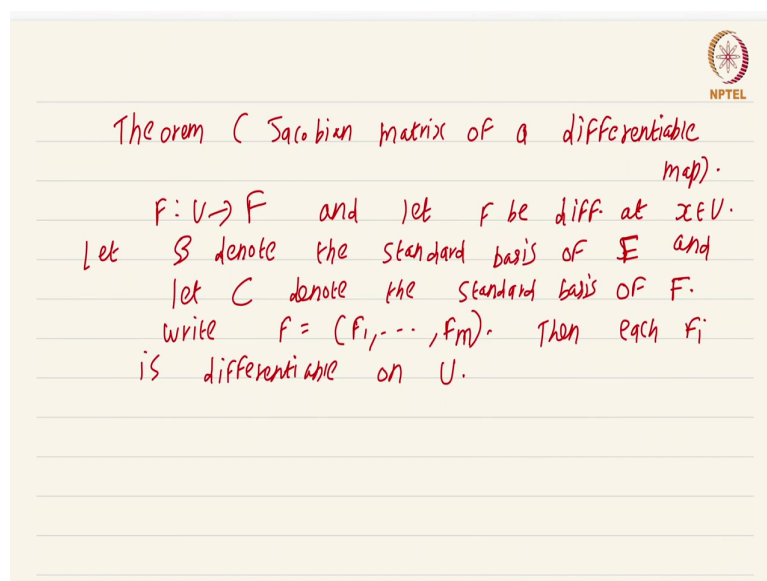 NPTEL
Theorem ( Jacobian matrix of a differentiable
map).
F: U → F and let F be diff. at x ∈ U.
Let B denote the standard basis of E and
let C denote the standard basis of F.
write F = (F1, ---, Fm). Then each Fi
is differentiable on U.